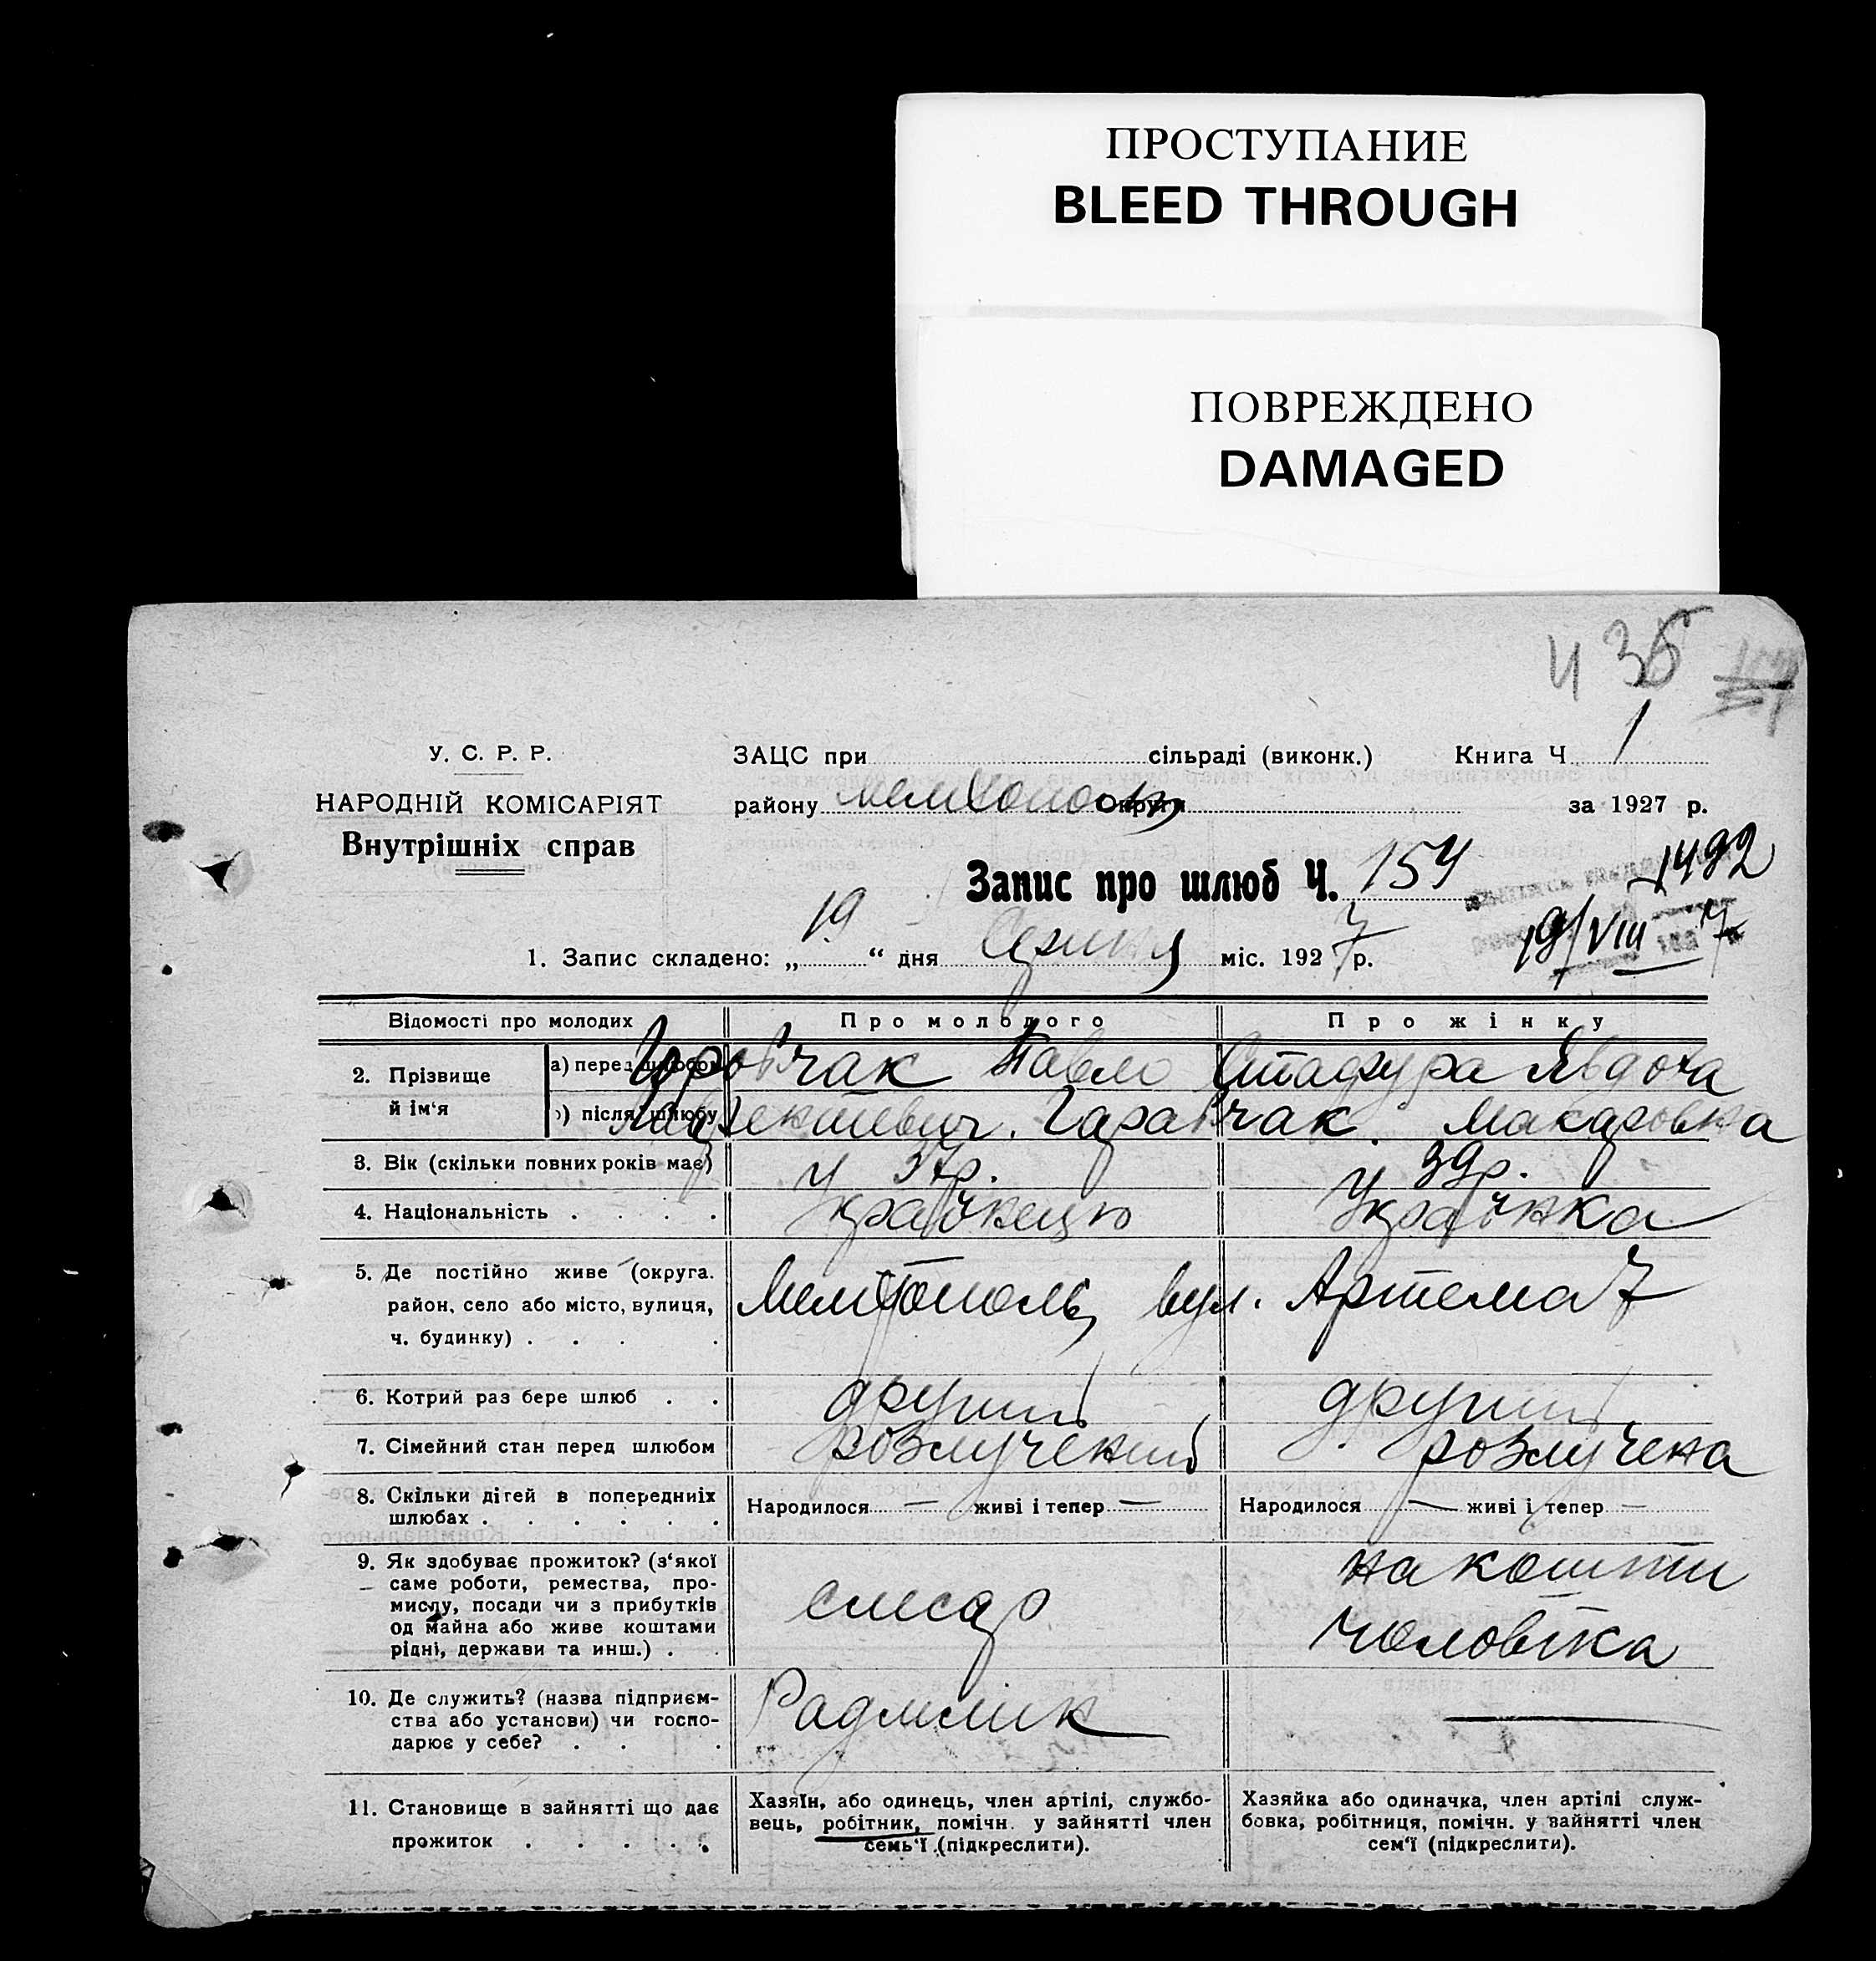 ПРОСТУПАНИЕ
BLEED THROUGH
ПОВРЕЖДЕНО
DAMAGED
435
У. С. Р. Р.
ЗАЦС при сільраді (виконк.) Книга Ч 1
НАРОДНІЙ КОМІСАРІЯТ
району Округи за 1927 р.
Внутрішніх справ
Запис про шлюб Ч. 154
1492
1. Запис складено: „19“ дня Серпня міс. 1927 р.
19/VIII 7
Відомості про молодих Про молодого Про жінку
2. Прізвище й ім‘я
а) перед шлюбом Павло Явдоха
б) після шлюбу Макаровна
3. Вік (скільки повних років має) 37р. 39р.
4. Національність . . . . Українка
5. Де постійно живе (округа.
район, село або місто, вулиця,
ч. будинку) . . . .
Мелітополь, вул. Артема 7
6. Котрий раз бере шлюб . . другий другий
7. Сімейний стан перед шлюбом розлучений розлучена
8. Скільки дітей в попередниіх
шлюбах . . . . . .
Народилося — живі і тепер —
Народилося — живі і тепер —
9. Як здобуває прожиток? (з‘якої
саме роботи, ремества, про-
мислу, посади чи з прибутків
од майна або живе коштами
рідні, держави та инш.) . .
слесар
на кошти
чоловіка
10. Де служить? (назва підприєм-
ства або установи) чи госпо-
дарює у себе? . . .
—
11. Становище в зайнятті що дає
прожиток . . . . .
Хазяїн, або одинець, член артілі, службо-
вець, робітник, помічн. у зайнятті член
семь‘ї (підкреслити).
Хазяйка або одиначка, член артілі служ-
бовка, робітниця, помічн. у зайнятті член
сем‘ї (підкреслити).